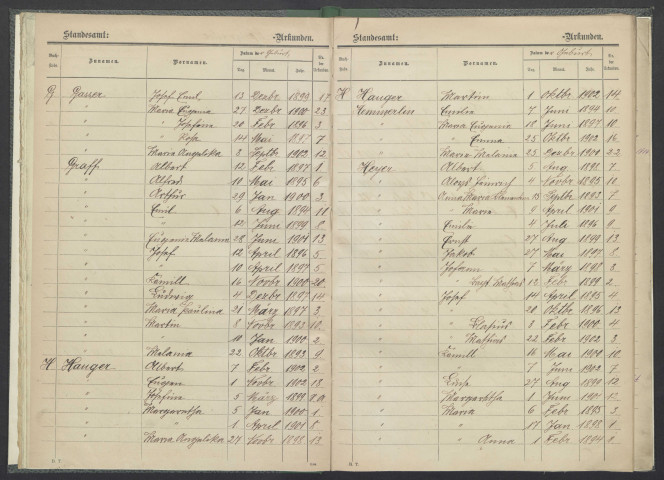 Standesamt: -Urkunden.
Buch-stabe. Zunamen. Vornamen. Datum der Geburt. Tag. Monat. Jahr. No. der Urkunden.
G Gauer Josef Emil 13 Dezbr 1899 17
" Maria Eugenia 27 Dezbr 1900 23
" " Josefina 20 Febr 1896 3
" " Rosa 14 Mai 7
" Maria Angelika 3 Septbr 1902 12
Graff Albert 12 Febr 1897 8
" Alfred 10 Mai 1895 6
" Arthur 29 Jan 1900 3
" Emil 6 Aug 1894 11
" " 12 Juni 1899 8
" Eugenie 28 Juni 1901 13
" Josef 12 April 1896 5
" " 10 April 1897 5
" Camill 16 Novbr 1900 20
" Ludwig 4 Dezbr 14
" Maria Paulina 21 März 1897 3
" Martin 8 Novbr 1893 10
" " 10 Jan 1900 2
" Malania 22 Oktbr 1893 9
H Hanger Albert 7 Febr 1902 2
" Eugen 1 Novbr 1902 18
" Josefine 5 März 1899
" Margaretha 5 Jan 1900 1
" " 1 April 1901 8
" Maria Angelika 27 Novbr 1898 13
D. 7.
Standesamt: -Urkunden.
Buch-stabe. Zunamen. Vornamen. Datum der Geburt. Tag. Monat. Jahr. No. der Urkunden.
H Hanger Martin 1 Oktbr 1902 14
Hemmerlin Emilie 7 Juni 1894
" Maria Eugenia 18 Juni 1897 10
" " Emma 25 Oktbr 1902 16
" Maria Malania 23 Dezbr 1900 22
Heyer Albert 5 Aug 1891 7
" Aloys Heinrich 4 Novbr 1895 11
" Anna Maria 15 Septbr 1893 7
" " Maria 9 April 1901 9
" Emilie 4 Juli 1896 9
" Ernst 27 Aug 1899 13
" Jakob 27 Mai 1897 8
" Johann 7 März 1898 3
" " 13 Febr 1899 2
" Josef 14 April 1895 4
" " 20 Oktbr 1896 13
" " 3 Febr 1900 4
" " Mathias 22 Febr 1902 3
" Camill 16 Mai 1900 10
" " 7 Juni 1902 7
" Luise 27 Aug 1899 12
" Margaretha 1 Juni 1901 12
" Maria 6 Febr 1895 3
" " 17 Jan 1898 1
" " Anna 1 Febr 1894
D. 7.